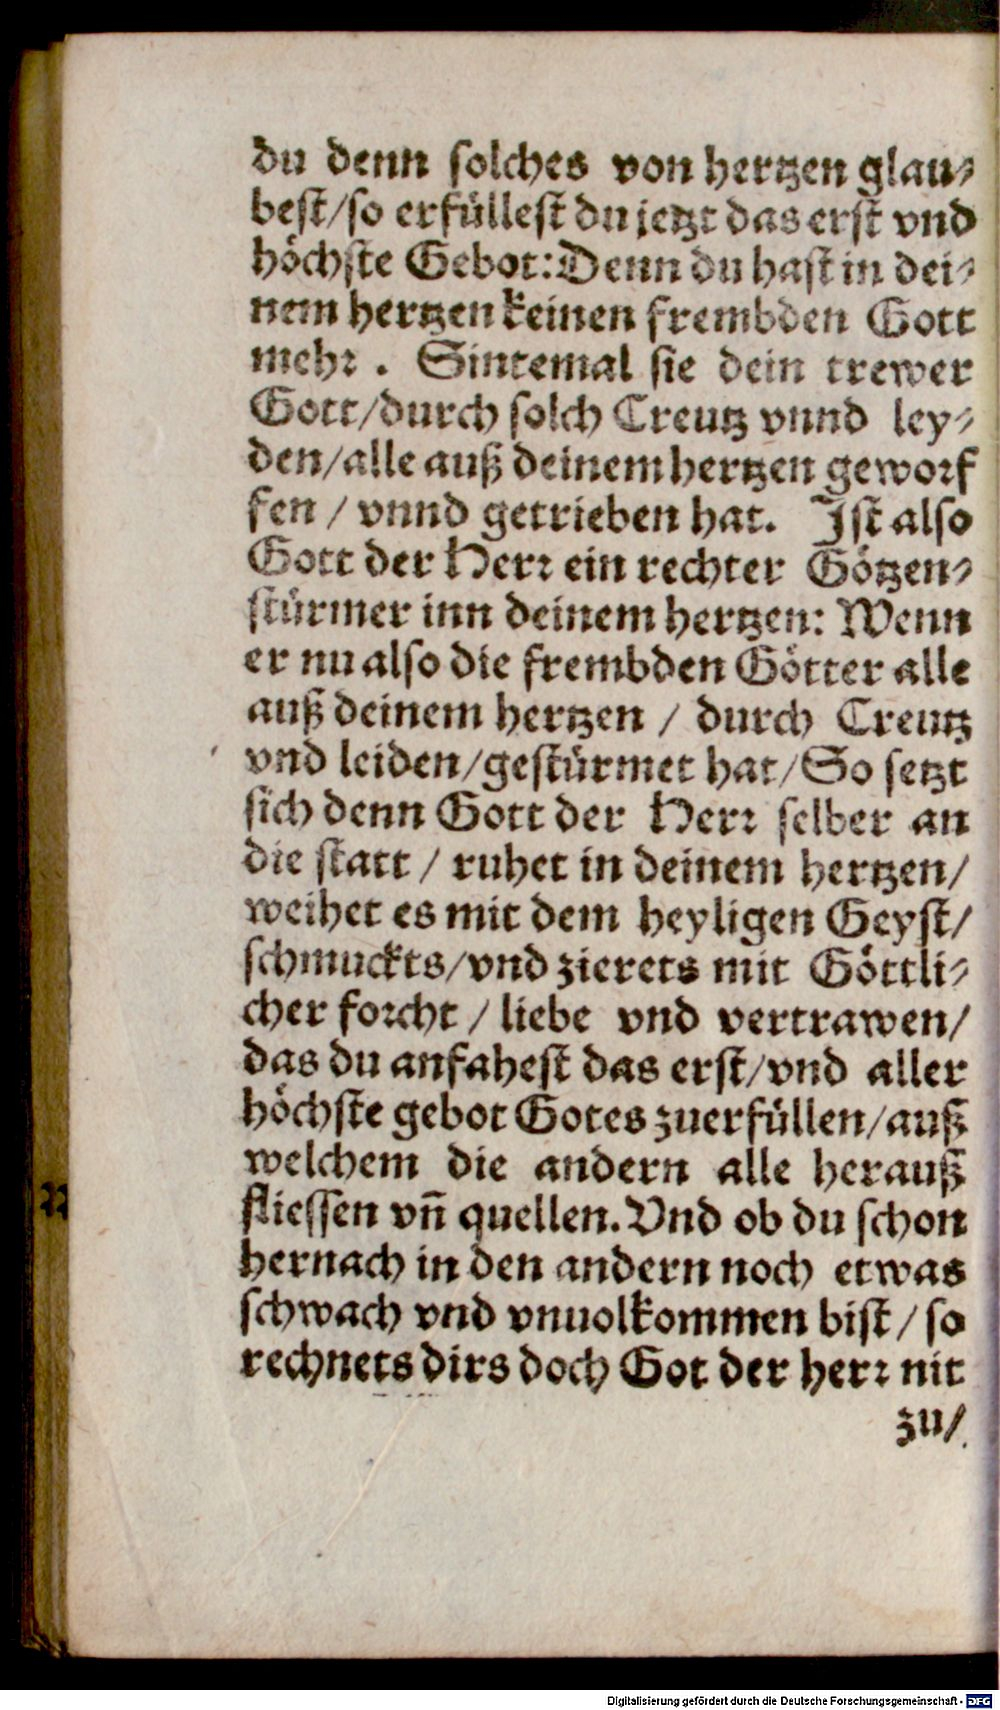 du denn ſolches von hertzen glau⸗
beſt/ſo erfülleſt du jetzt das erſt vnd
höchſte Gebot: Denn du haſt in dei⸗
nem hertzen keinen frembden Gott
mehꝛ. Sintemal ſie dein trewer
Gott/durch ſolch Creutz vnnd ley⸗
den/alle auß deinem hertzen gewoꝛf
fen / vnnd getrieben hat. Iſt alſo
Gott der Herꝛ ein rechter Götzen⸗
ſtürmer inn deinem hertzen: Wenn
er nu alſo die frembden Götter alle
auß deinem hertzen / durch Creutz
vnd leiden/geſtürmet hat/So ſetzt
ſich denn Gott der Herꝛ ſelber an
die ſtatt / ruhet in deinem hertzen/
weihet es mit dem heyligen Geyſt/
ſchmuckts/vnd zierets mit Göttli⸗
cher foꝛcht / liebe vnd vertrawen/
das du anfaheſt das erſt/vnd aller
höchſte gebot Gotes zuerfüllen/auß
welchem die andern alle herauß
flieſſen vñ quellen. Vnd ob du ſchon
hernach in den andern noch etwas
ſchwach vnd vnuolkommen biſt / ſo
rechnets dirs doch Got der herꝛ nit
zu/
Digitalisierung gefördert durch die Deutsche Forschungsgemeinschaft - DFG